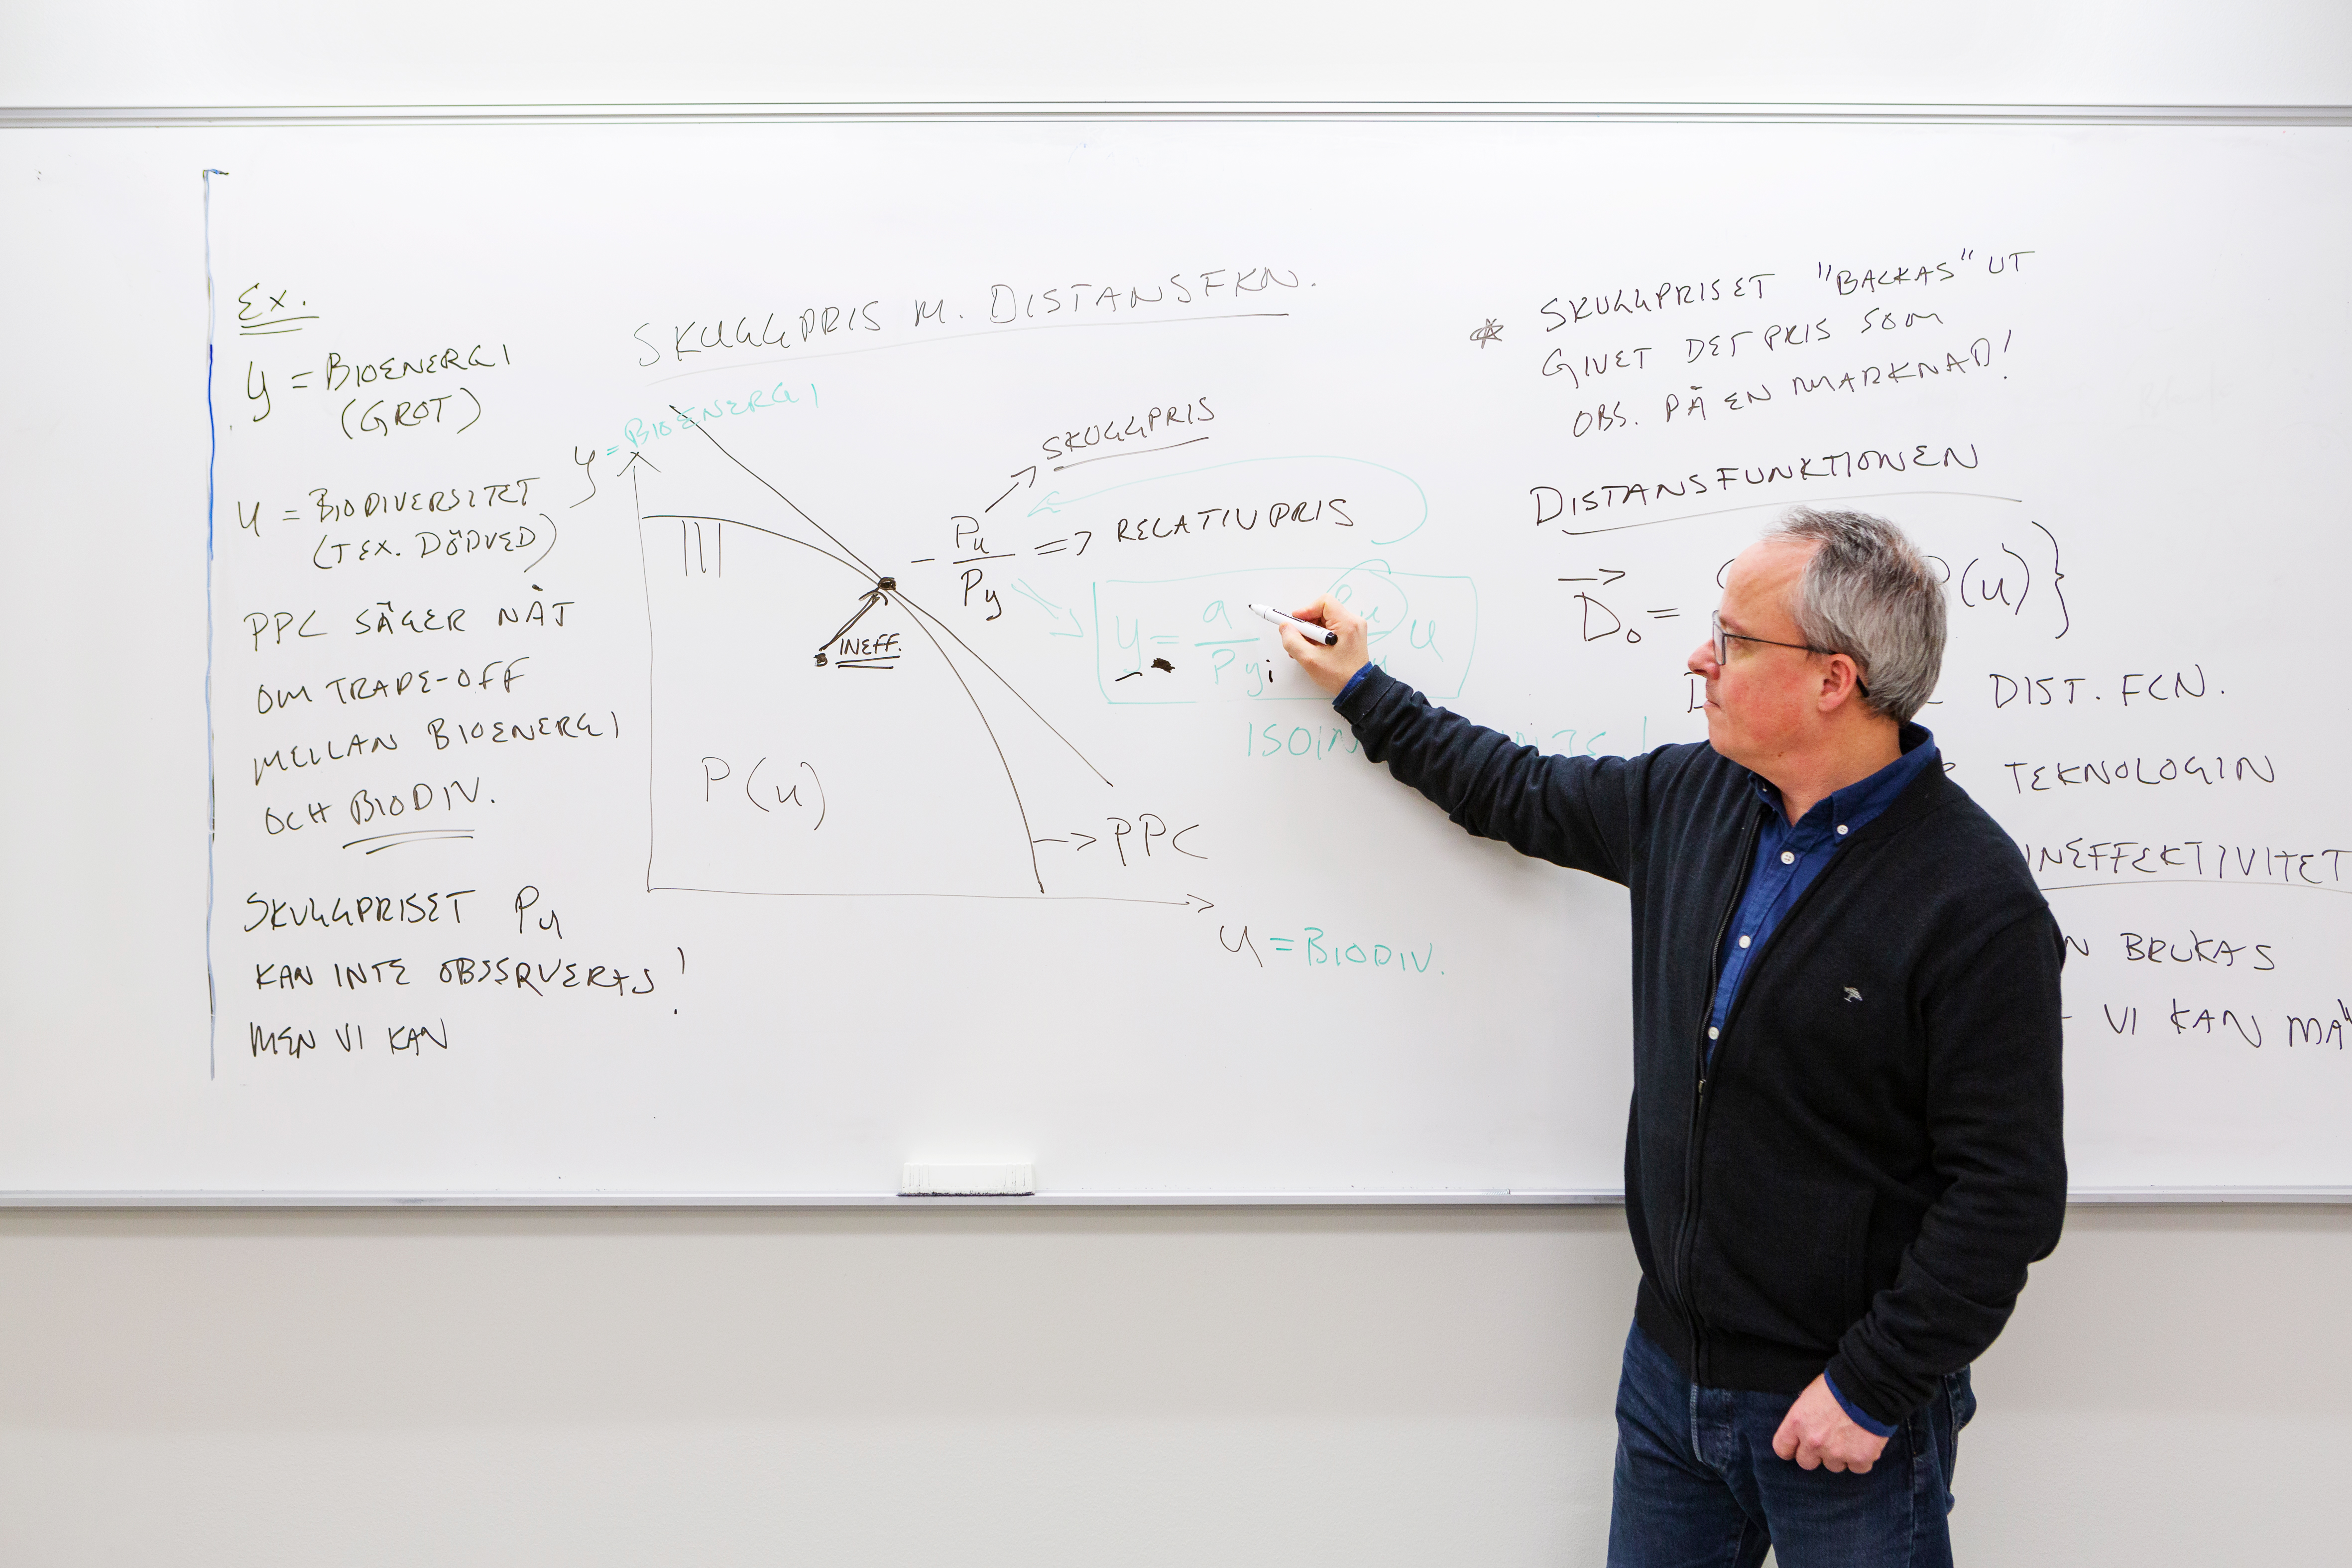 Ex.
y = BIOENERGI
(GROT)
u = BIODIVERSITET
(T EX. DÖDVED)
PPC SÄGER NÅT
OM TRADE-OFF
MELLAN BIOENERGI
OCH BIODIV.
SKUGGPRISET Pu
KAN INTE OBSERVERAS!
MEN VI KAN
SKUGGPRIS M. DISTANSFKN.
y = BIOENERGI
SKUGGPRIS
- Pu / Py => RELATIVPRIS
INEFF.
y = a / Py
u
P(u)
PPC
u = BIODIV.
* SKUGGPRISET "BACKAS" UT
GIVET DET PRIS SOM
OBS. PÅ EN MARKNAD!
DISTANSFUNKTIONEN
D₀ =
(u)}
DIST. FCN.
TEKNOLOGIN
INEFFEKTIVITET
BRUKAS
VI KAN